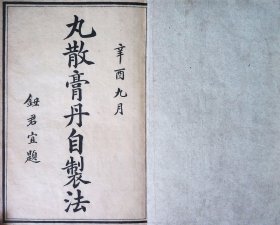 辛酉九月
丸散膏丹自製法
鈕君宜題